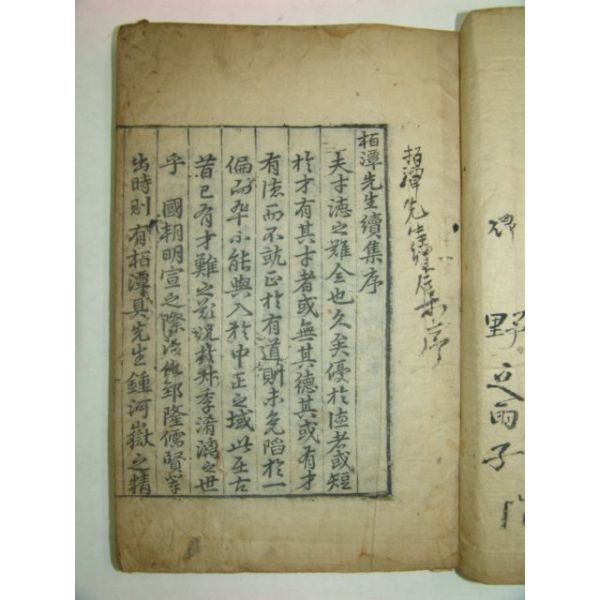 碑
野
雨子
栢潭先生續集序
栢潭先生續集序
夫才德之難全也久矣優於德者或短
於才有其才者或無其德其或有才
有德而不就正於有道則未免陷於一
偏而卒不能與入於中正之域此在古
昔已有才難之歎況於叔季淆漓之世
乎 國朝明宣之際治化郅隆儒賢輩
出時則有栢潭具先生鍾河嶽之精